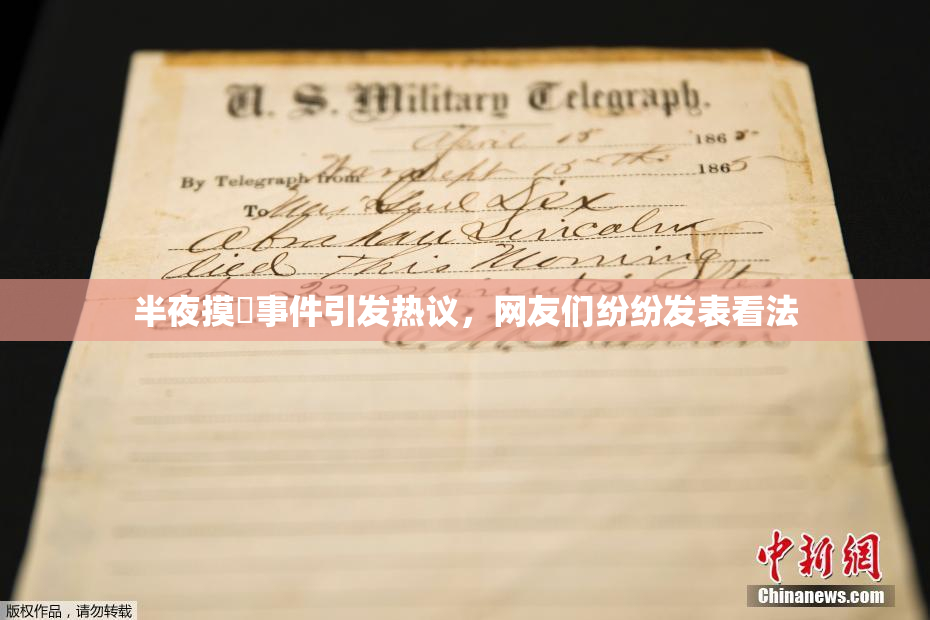 U. S. Military Telegraph.
April 15 1865
By Telegraph from War Dept 15th 1865
To Maj Genl Dix
Abraham Lincoln
died This Morning
at 22 minutes after
半夜摸▯事件引发热议，网友们纷纷发表看法
中新网
Chinanews.com
版权作品，请勿转载